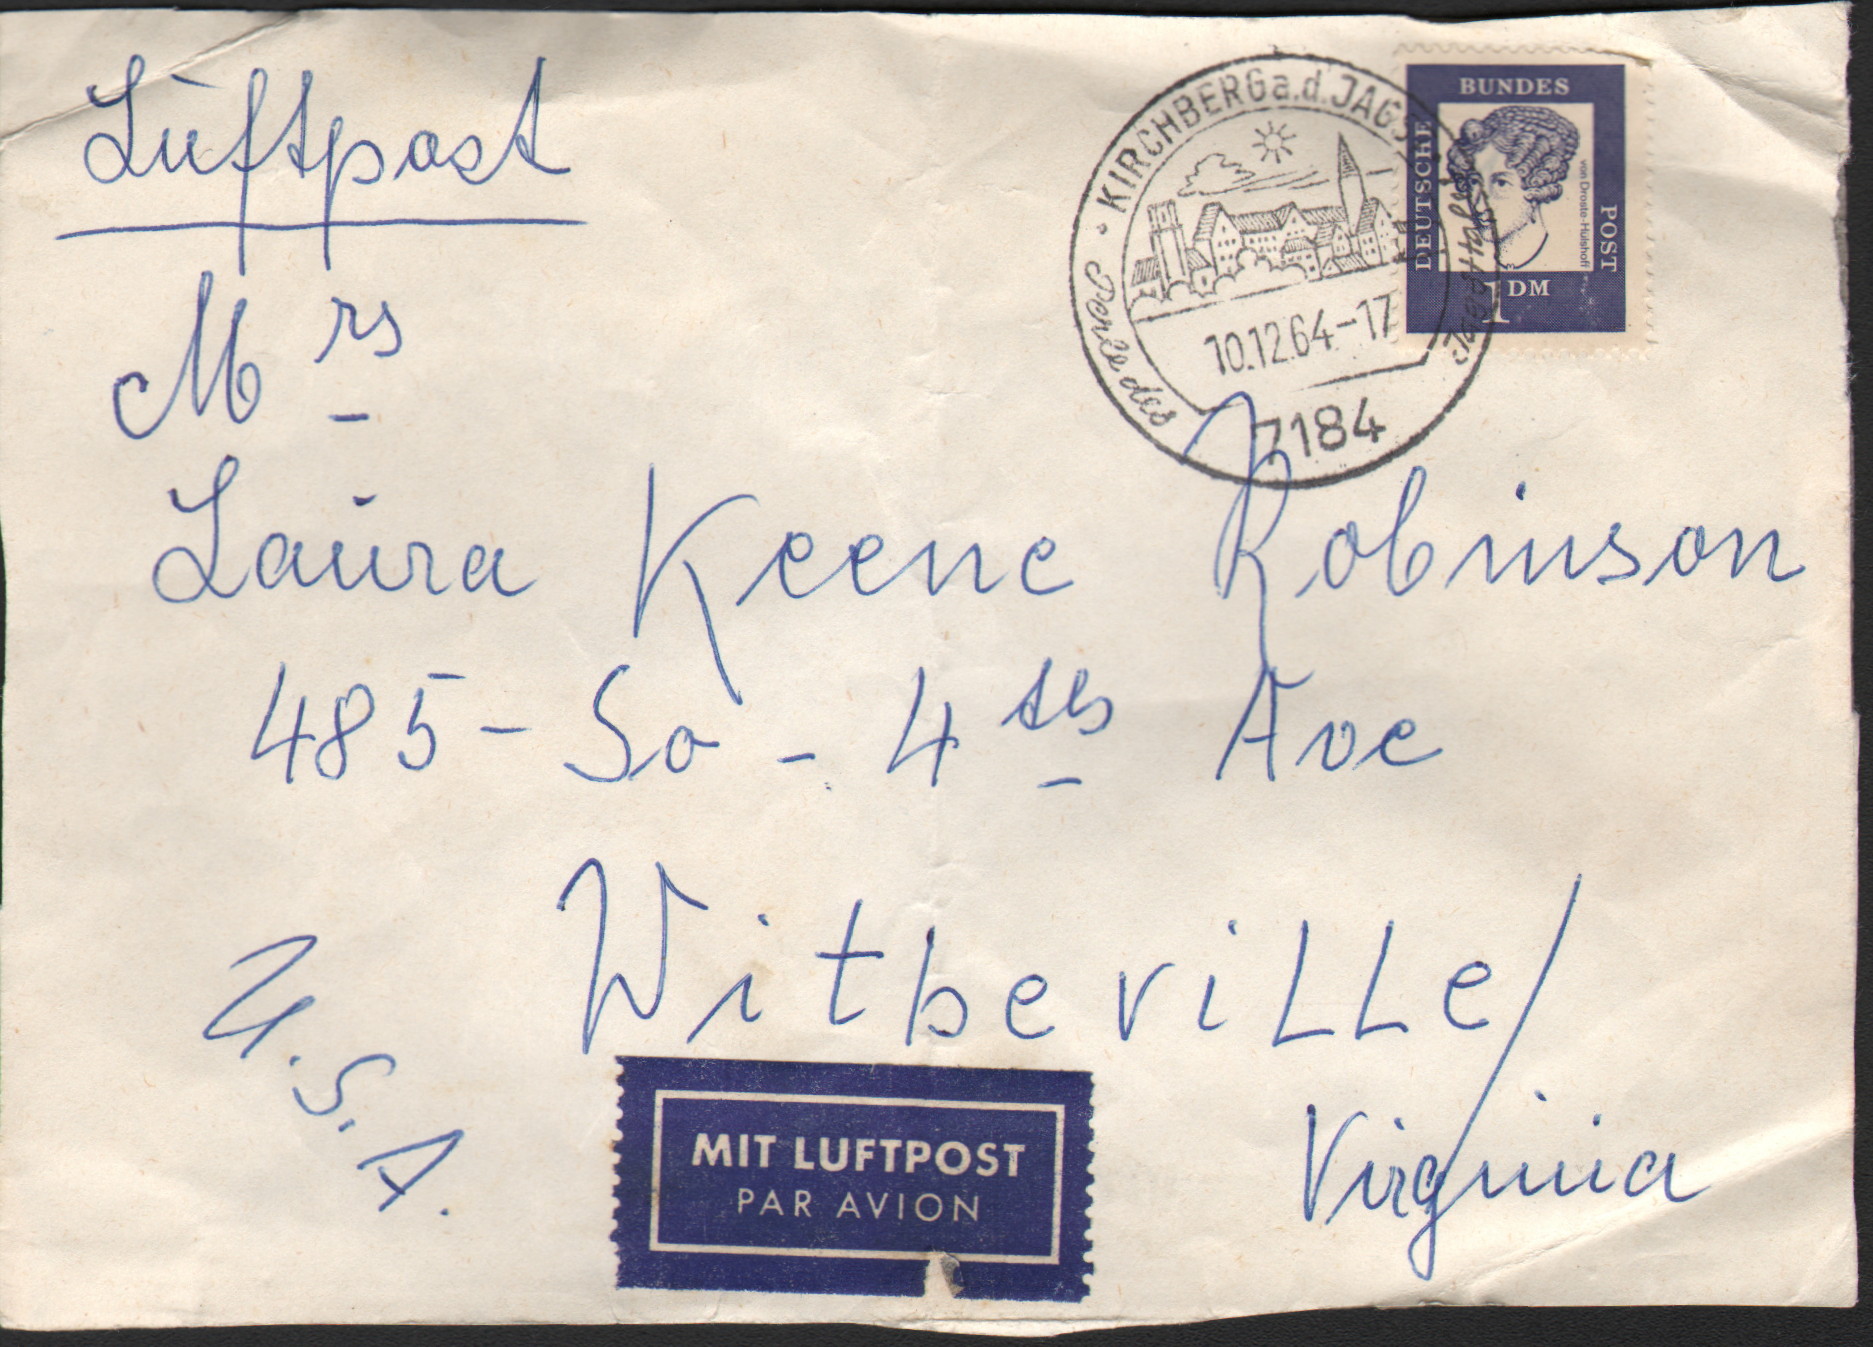 Luftpost
Mrs
Laura Keene Robinson
485 - So - 4ths Ave
Witheville/
Virginia
U.S.A.
MIT LUFTPOST
PAR AVION
KIRCHBERG a.d. JAGST
10.12.64-17
Perle des
7184
DEUTSCHE
BUNDES
POST
von Droste-Hülshoff
1 DM